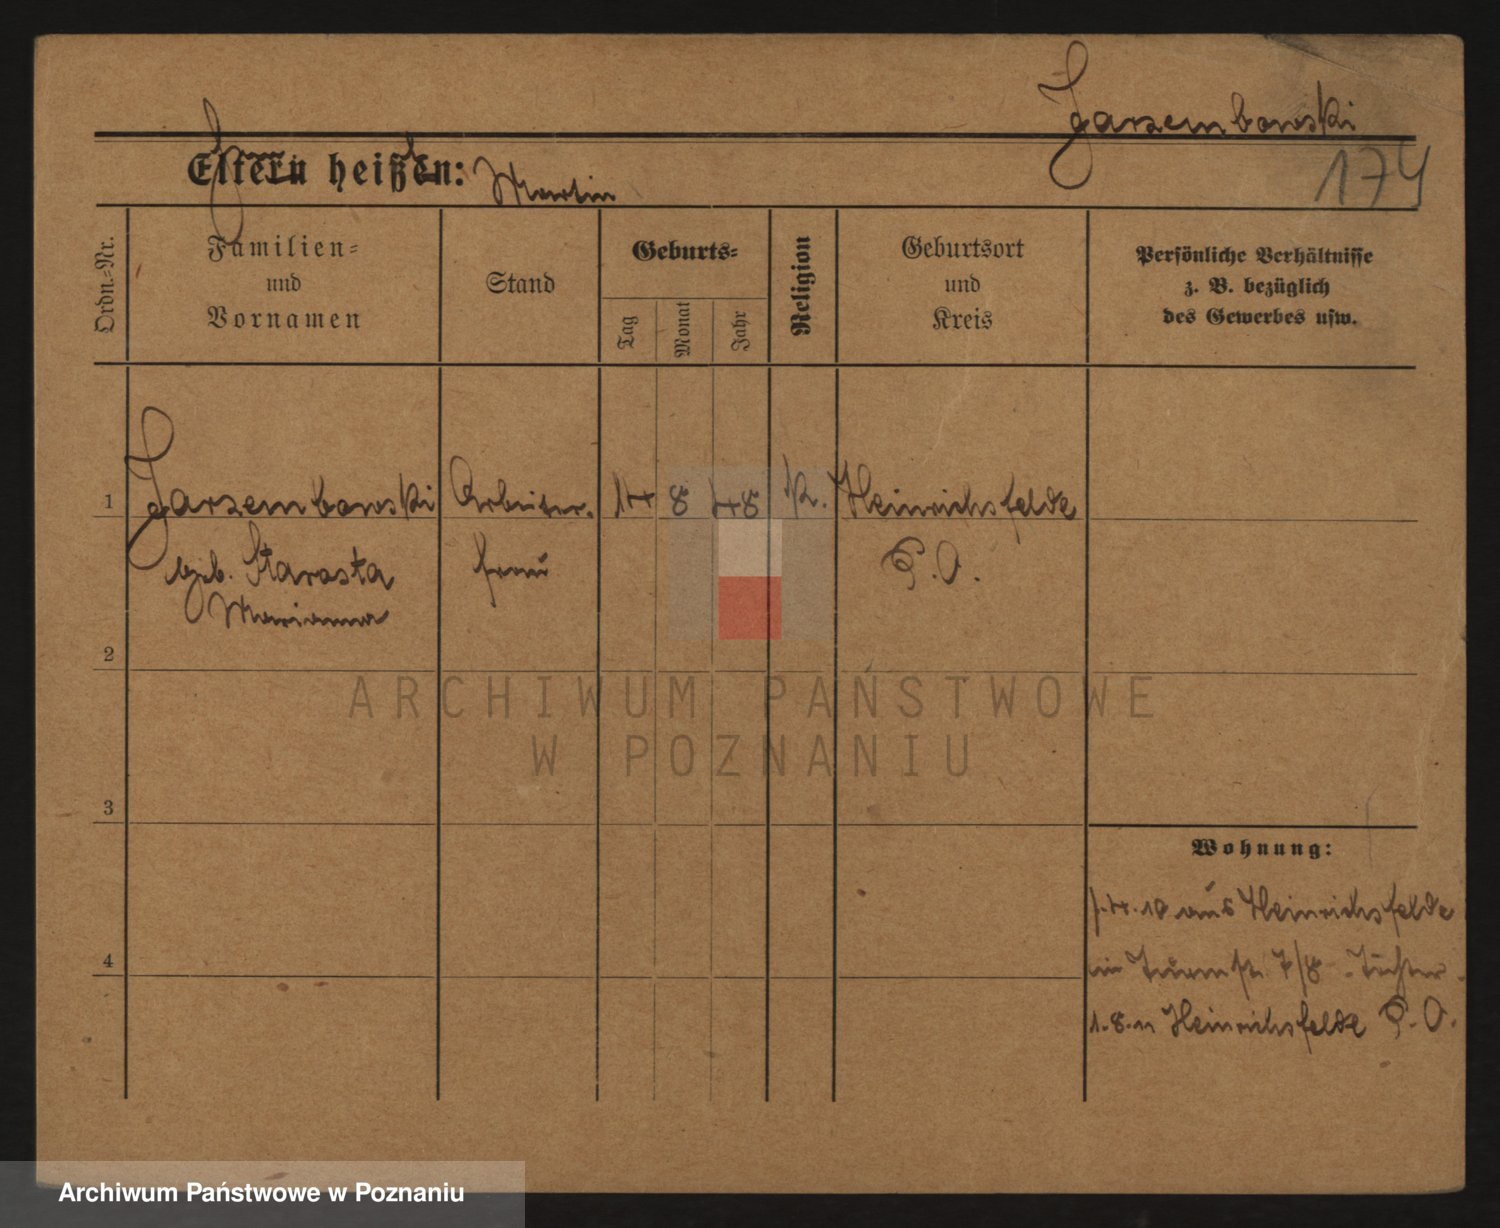 Jarzembowski
174
Eltern heißen: Martin
Ordn.-Nr.
Familien-
und
Vornamen
Stand
Geburts-
Tag
Monat
Jahr
Religion
Geburtsort
und
Kreis
Persönliche Verhältnisse
z. B. bezüglich
des Gewerbes usw.
1
Jarzembowski Arbeiter- 14 8 48 K. Heinrichsfelde
geb. Starosta frau P. O.
Marianna
2
ARCHIWUM PAŃSTWOWE
W POZNANIU
3
Wohnung:
4.10 aus Heinrichsfelde
4
in Turmstr. 7/8 - Tochter
1.8.11 Heinrichsfelde P. O.
Archiwum Państwowe w Poznaniu